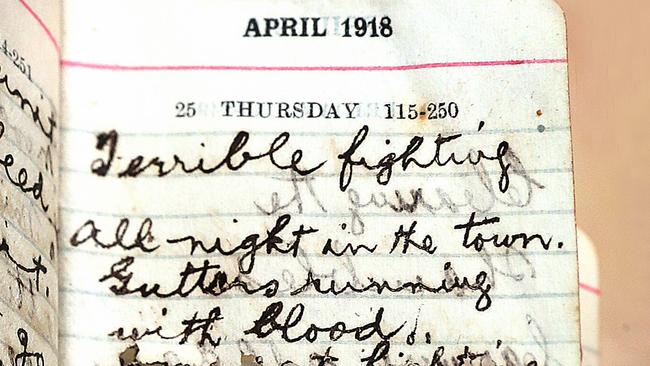 4-251
APRIL 1918
25 THURSDAY 115-250
Terrible fighting
all night in the town.
Gutters running
with blood.